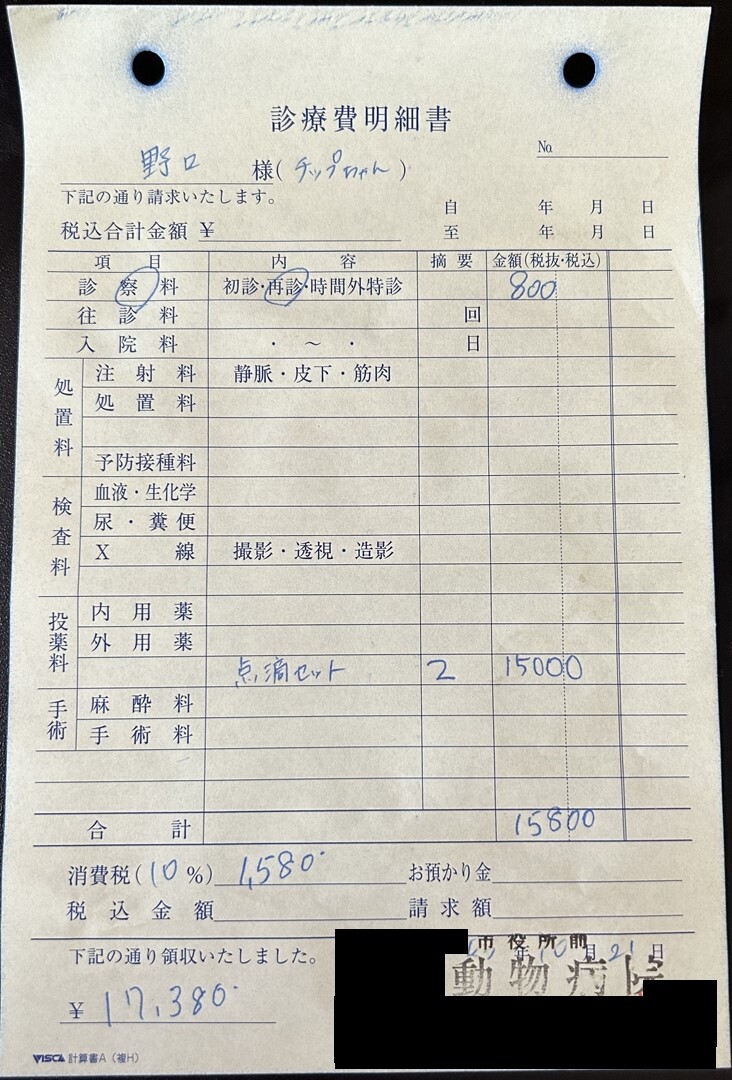 診療費明細書
No.
野口 様(チップちゃん)
下記の通り請求いたします。
自 年 月 日
税込合計金額 ¥
至 年 月 日
項目 内容 摘要 金額(税抜・税込)
診察料 初診・再診・時間外特診 800
往診料 回
入院料 ・ ~ ・ 日
処置料
注射料 静脈・皮下・筋肉
処置料
予防接種料
検査料
血液・生化学
尿・糞便
X線 撮影・透視・造影
投薬料
内用薬
外用薬
点滴セット 2 15000
手術
麻酔料
手術料
合計 15800
消費税(10%) 1,580. お預かり金
税込金額 請求額
下記の通り領収いたしました。
年10月21日
市役所前
動物病院
¥ 17,380.
VISCA 計算書A(複H)